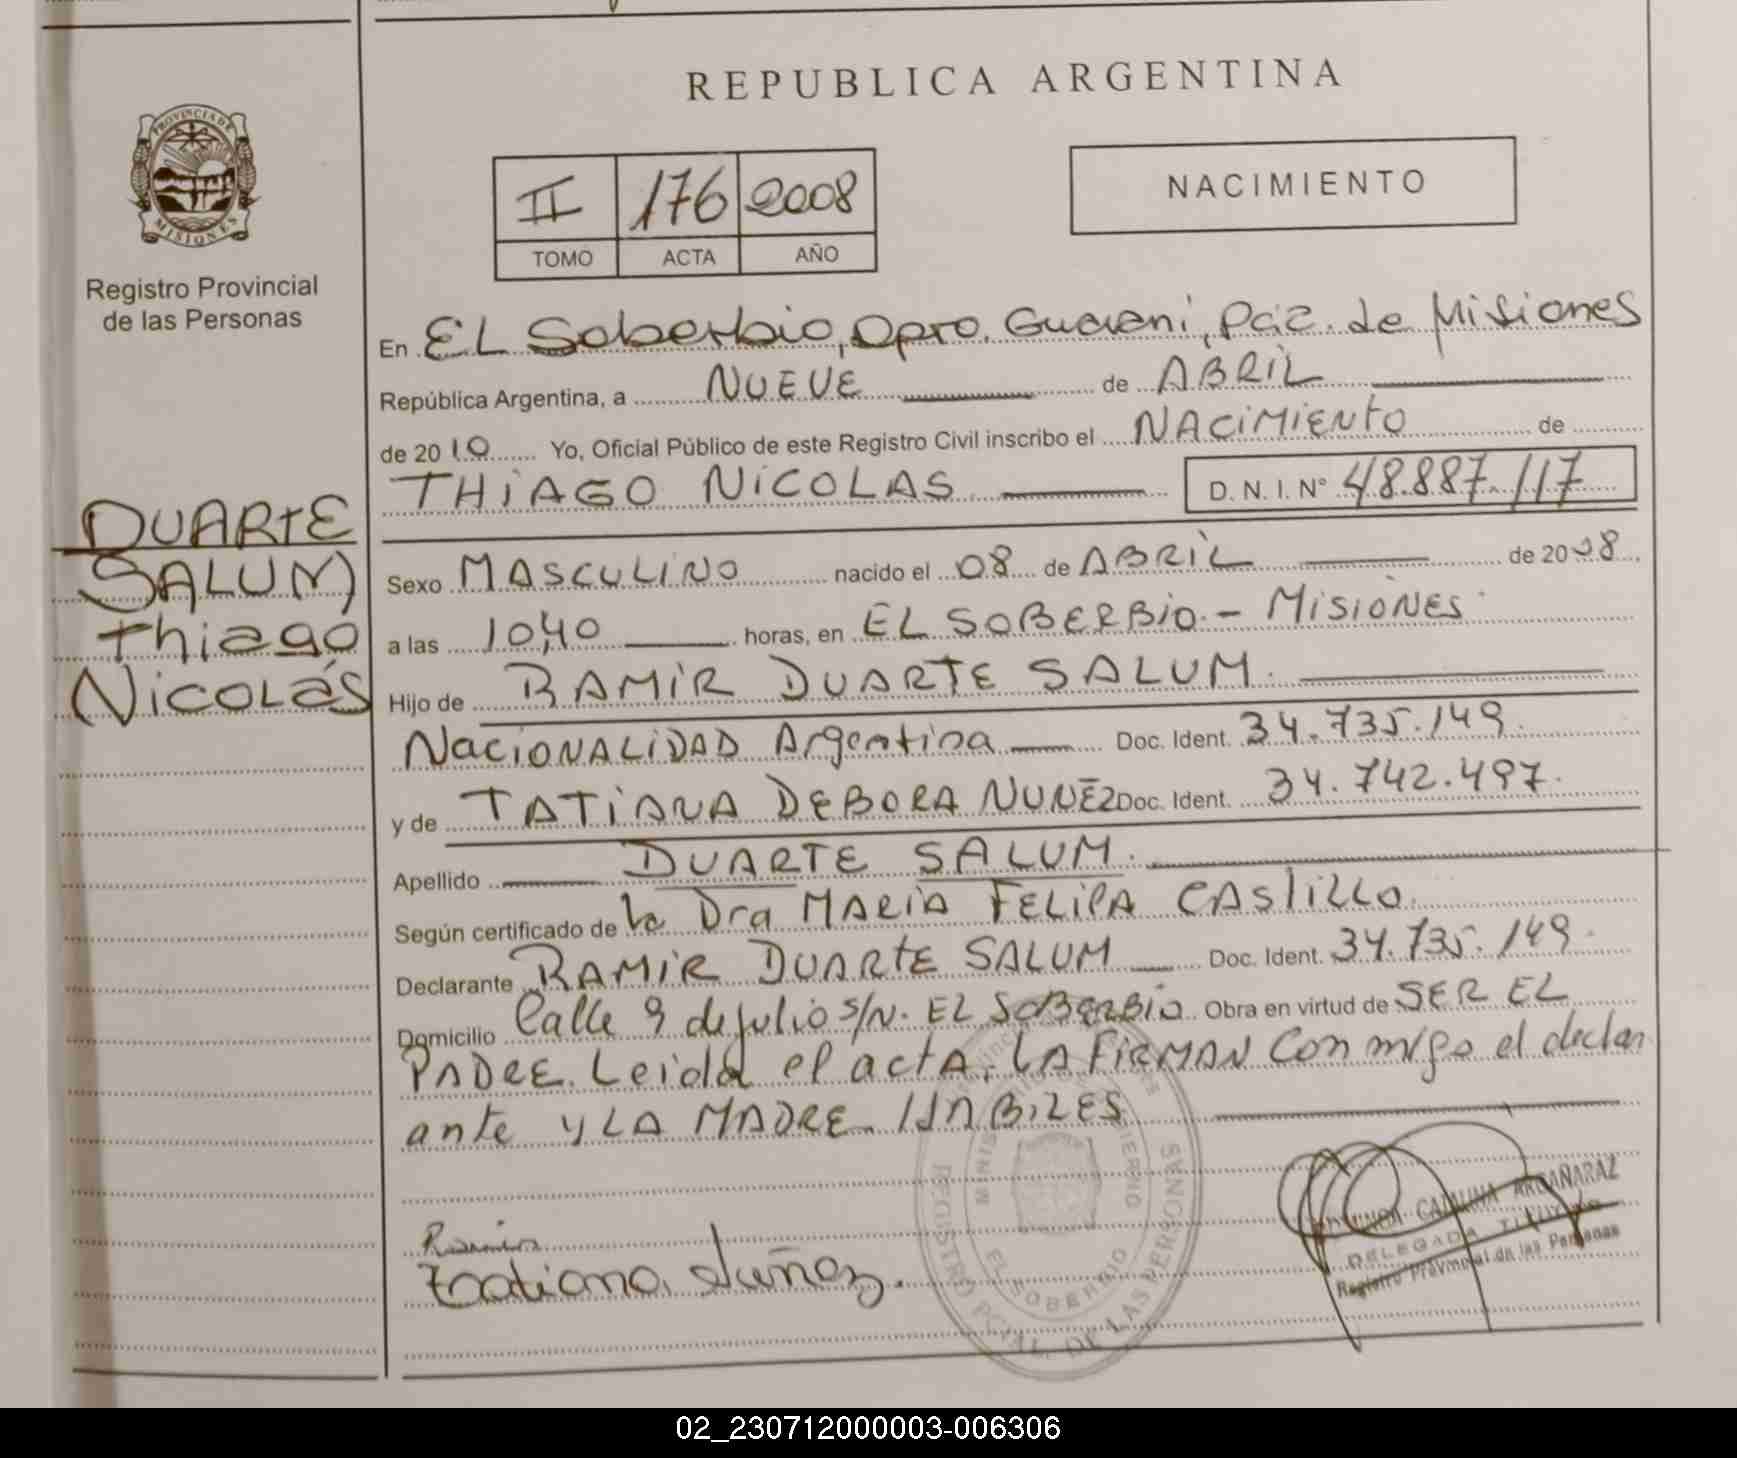 REPUBLICA ARGENTINA
PROVINCIA DE MISIONES
Registro Provincial
de las Personas
II 176 2008
TOMO ACTA AÑO
NACIMIENTO
En EL Soberbio, Dpto. Guarani, Pcia. de Misiones
República Argentina, a NUEVE de ABRIL
de 2010 Yo, Oficial Público de este Registro Civil inscribo el NACIMIENTO de
THIAGO NICOLAS D. N. I. N° 48.887.117
DUARTE
SALUM
Thiago
Nicolás
Sexo MASCULINO nacido el 08 de ABRIL de 2008
a las 10,40 horas, en EL SOBERBIO - MISIONES
Hijo de RAMIR DUARTE SALUM.
NACIONALIDAD Argentina Doc. Ident. 34.735.149.
y de TATIANA DEBORA NUÑEZ Doc. Ident. 34.742.497.
Apellido DUARTE SALUM.
Según certificado de la Dra MARIA FELIPA CASTILLO.
Declarante RAMIR DUARTE SALUM Doc. Ident. 34.735.149.
Domicilio Calle 9 de julio S/N. EL SOBERBIO. Obra en virtud de SER EL
PADRE. Leida el acta, LA FIRMAN Con el declar
ante y LA MADRE.
Ramir
Tatiana Nuñez.
MINISTERIO DE GOBIERNO
REGISTRO PCIAL. DE LAS PERSONAS
EL SOBERBIO
CATALINA ARGAÑARAZ
DELEGADA TITULAR
Registro Provincial de las Personas
02_230712000003-006306